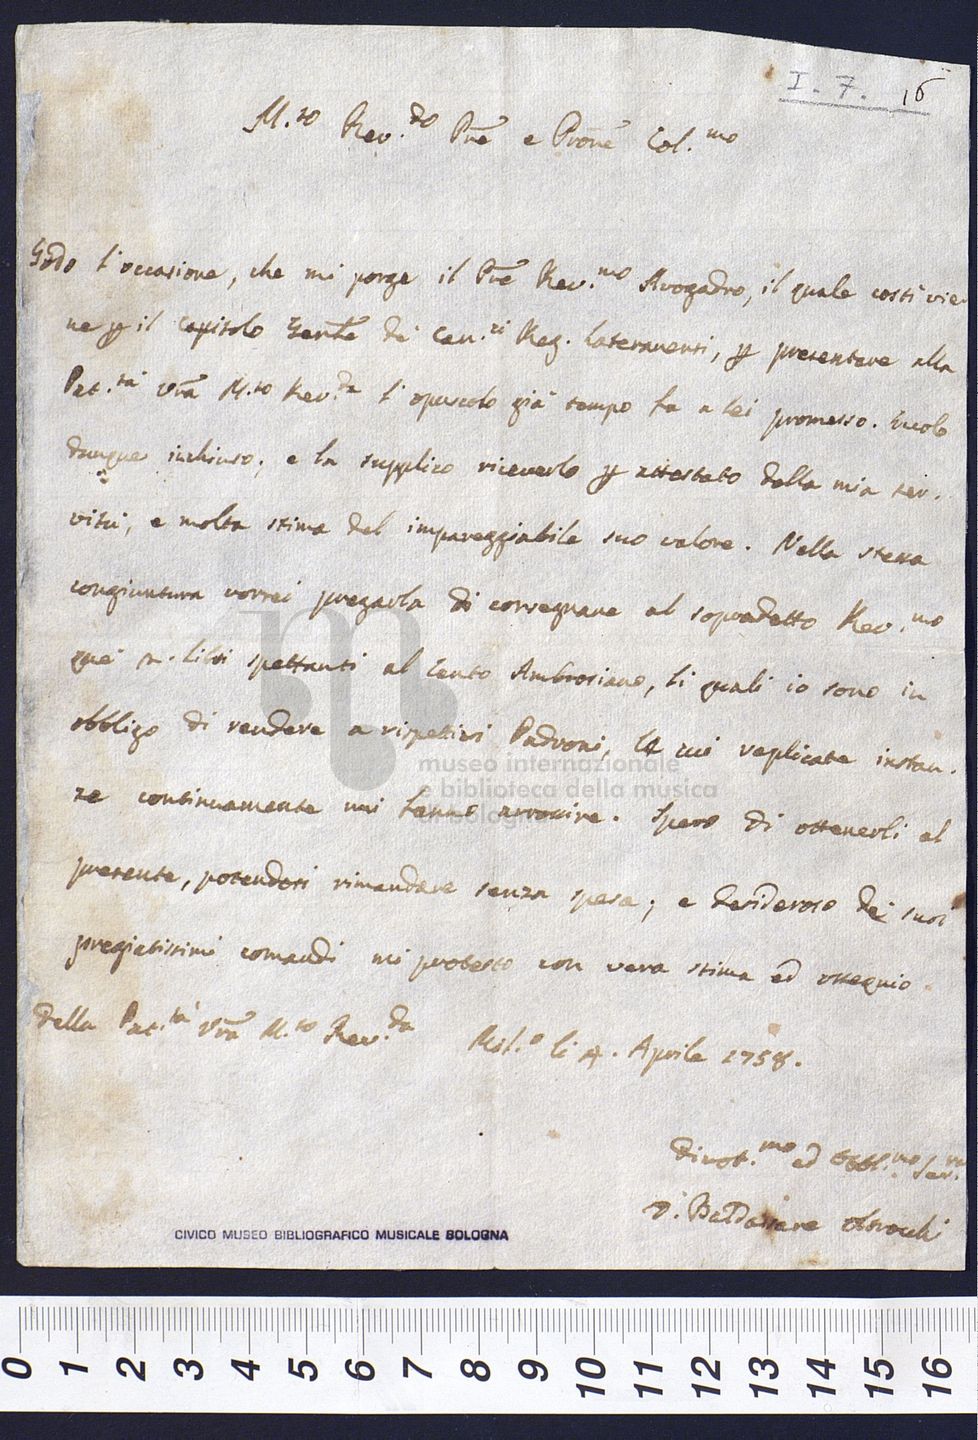 I. 7. 16
M.to Rev.do Pre e Prone Col.mo
Godo l'occasione, che mi porge il Pre Rev.mo Avogadro, il quale costì vie
ne p il Capitolo Genle de Can.ci Reg. Lateranensi, p presentare alla
Pat.tà Vra M.to Rev.da l'opuscolo già tempo fa a lei promesso. Eccolo
dunque inchiuso; e la supplico riceverlo p attestato della mia ser-
vitù, e molta stima del impareggiabile suo valore. Nella stessa
congiuntura vorrei pregarla di consegnare al sopradetto Rev.mo
que' libri spettanti al Canto Ambrosiano, li quali io sono in
obbligo di rendere a rispettivi Padroni, le cui replicate instan-
ze continuamente mi fanno arrossire. Spero di ottenerli al
presente, potendosi rimandare senza spesa; e desideroso de' suoi
pregiatissimi comandi mi protesto con vera stima ed ossequio
della Pat.tà Vra M.to Rev.da Mil.o li 4. Aprile 1758.
Divot.mo ed Obbl.mo Ser.re
D. Baldassare Oltrocchi
CIVICO MUSEO BIBLIOGRAFICO MUSICALE BOLOGNA
museo internazionale
e biblioteca della musica
di bologna
0 1 2 3 4 5 6 7 8 9 10 11 12 13 14 15 16